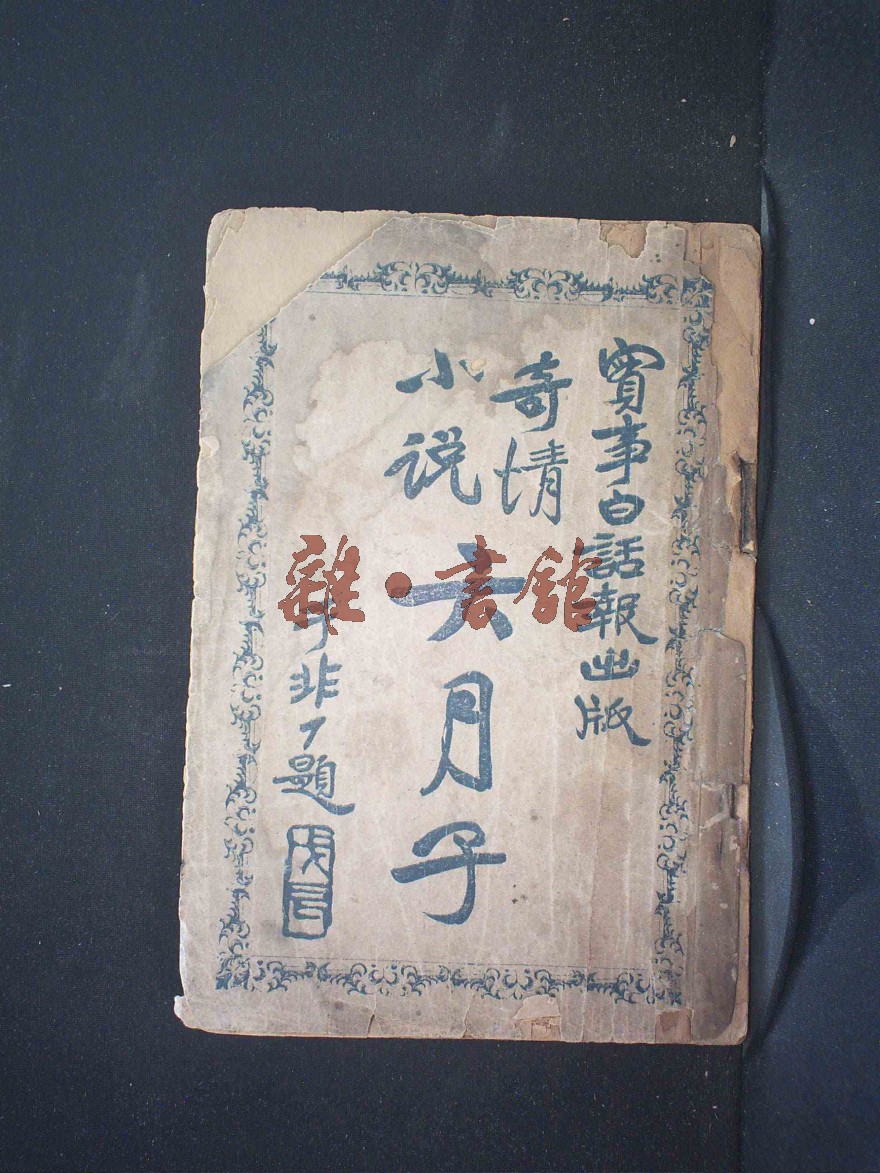 實事白話報出版
奇情
小説
六月子
于非厂題
雜·書館